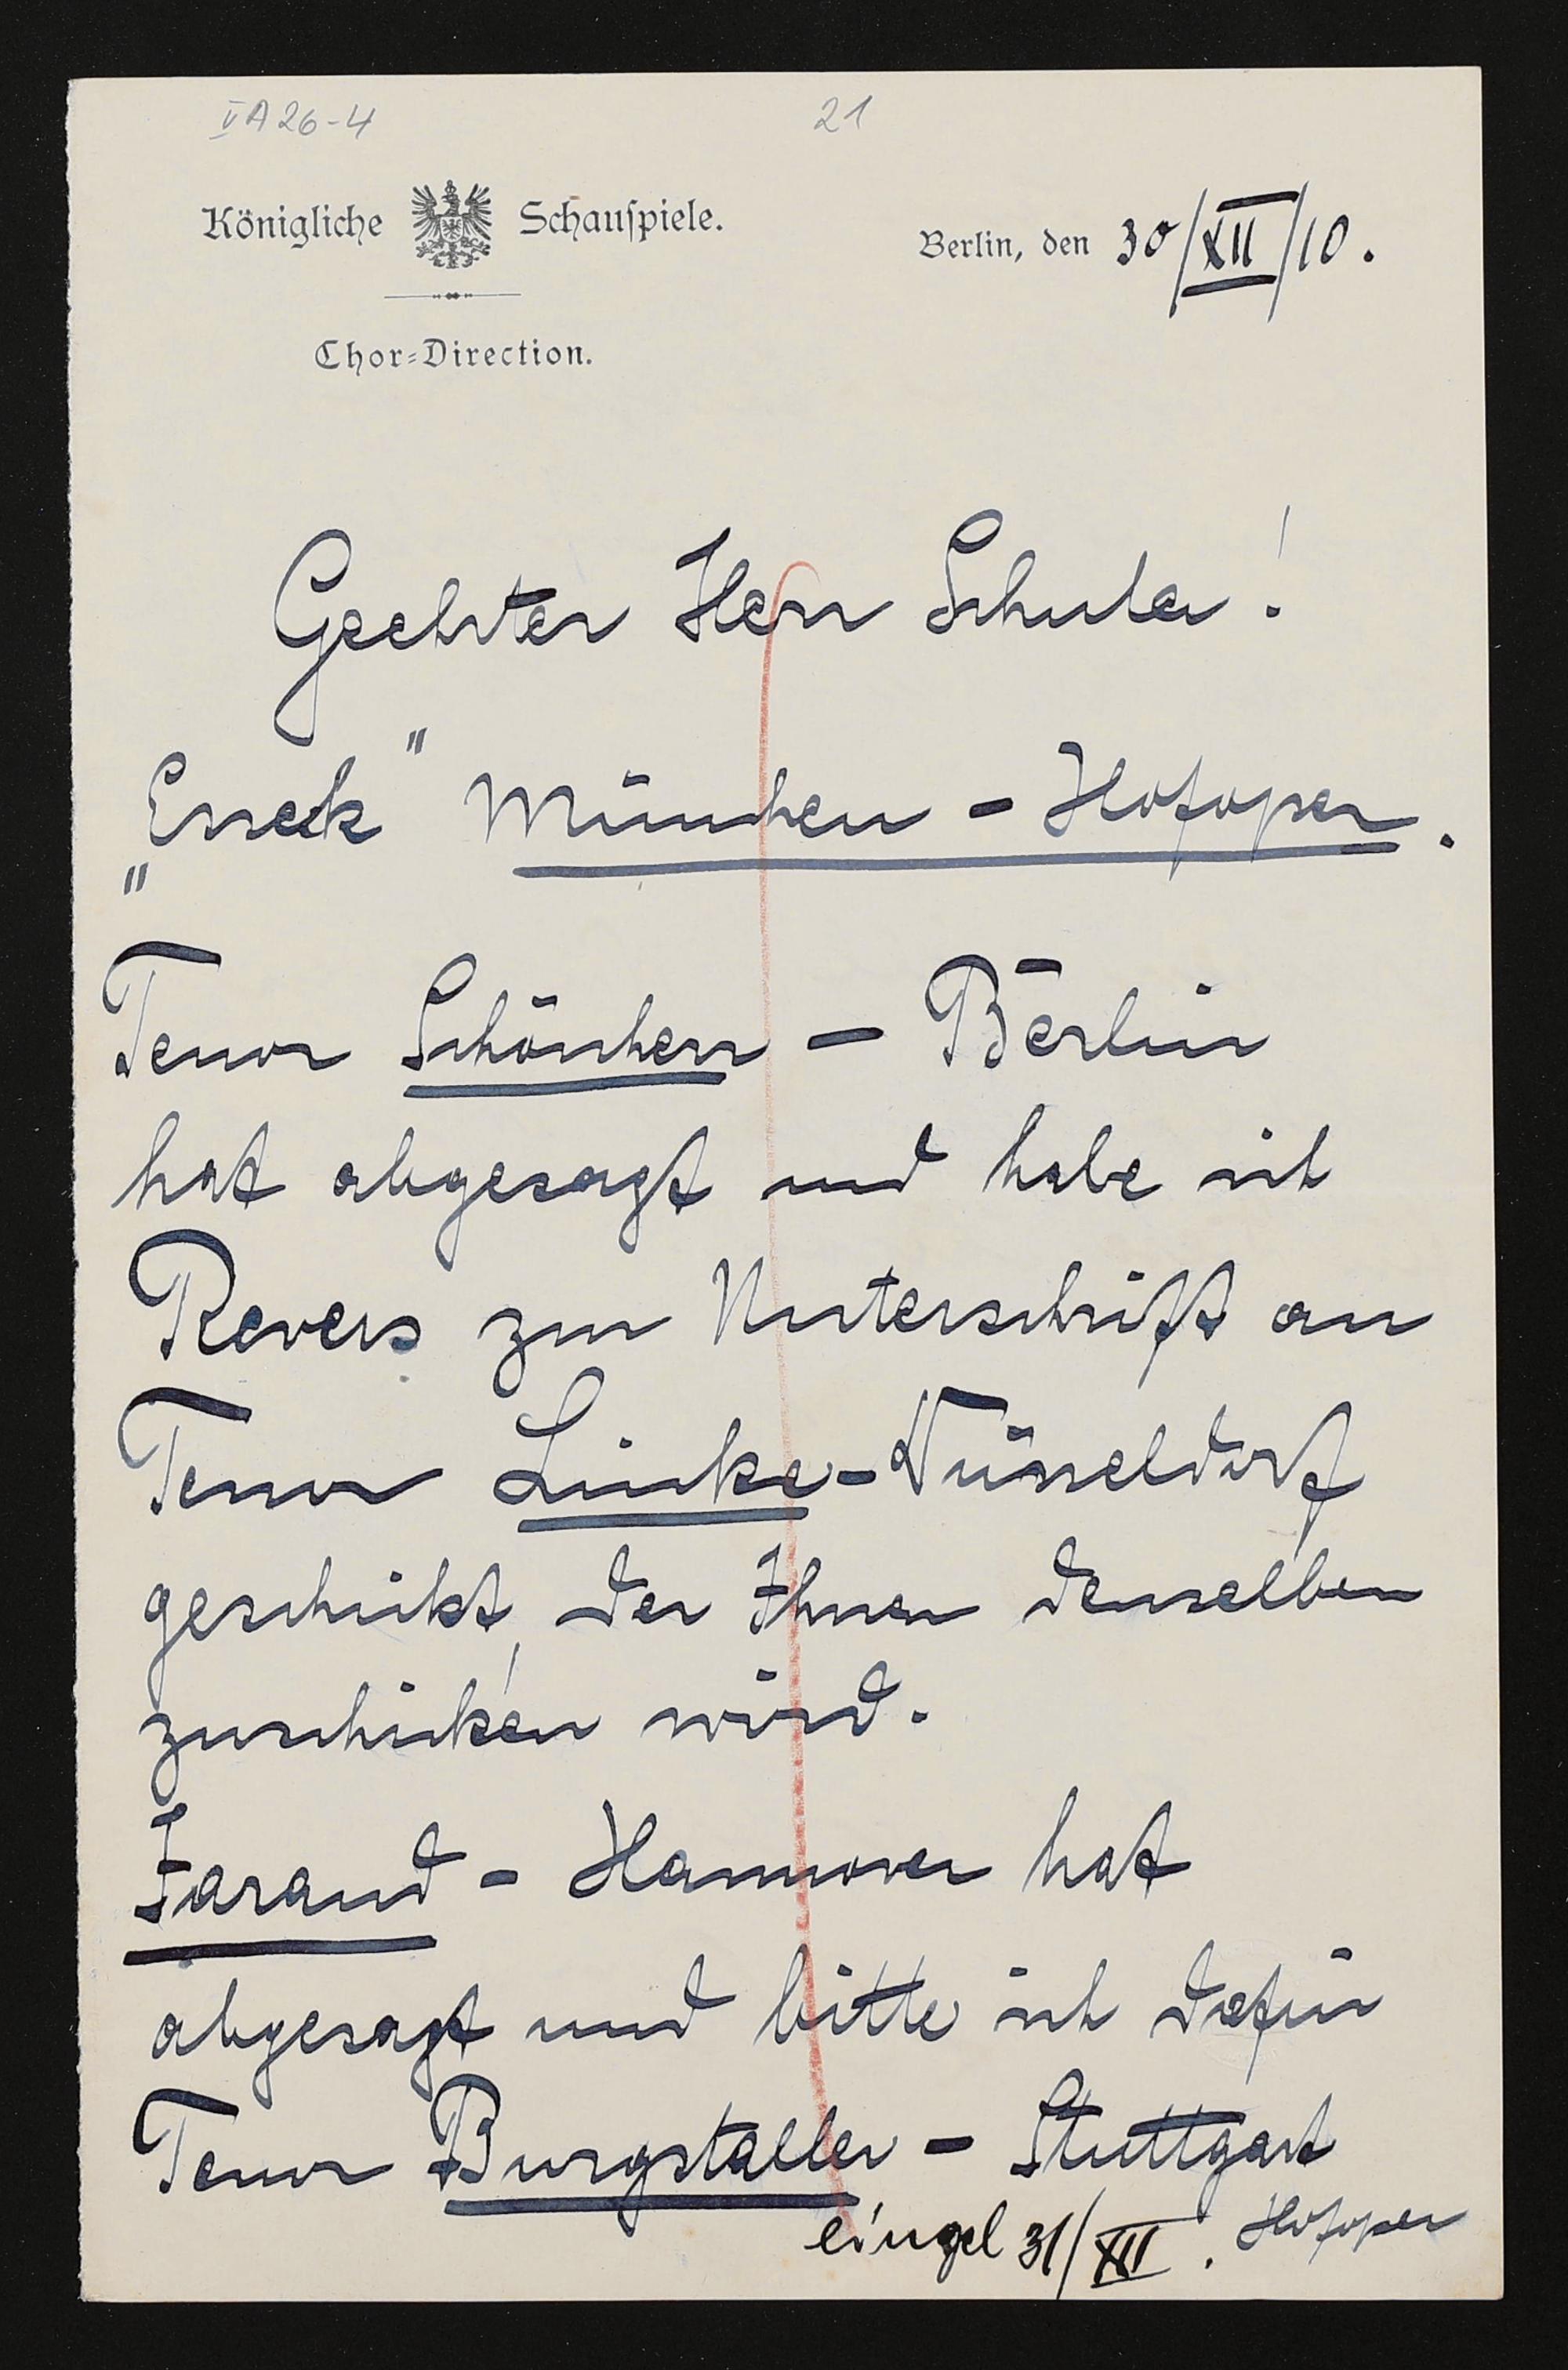 V A 26-4 21
Königliche Schauspiele. Berlin, den 30/XII/10.
Chor-Direction.
Geehrter Herr Schuler!
„Esseck" München - Hofoper.
Tenor Schönherr - Berlin
hat abgesagt und habe ich
Revers zur Unterschrift an
Tenor Lincke - Düsseldorf
geschickt, der Ihnen denselben
zuschicken wird.
Farand - Hannover hat
abgesagt und bitte ich dafür
Tenor Burgstaller - Stuttgart
eingel 31/XII. Hofoper